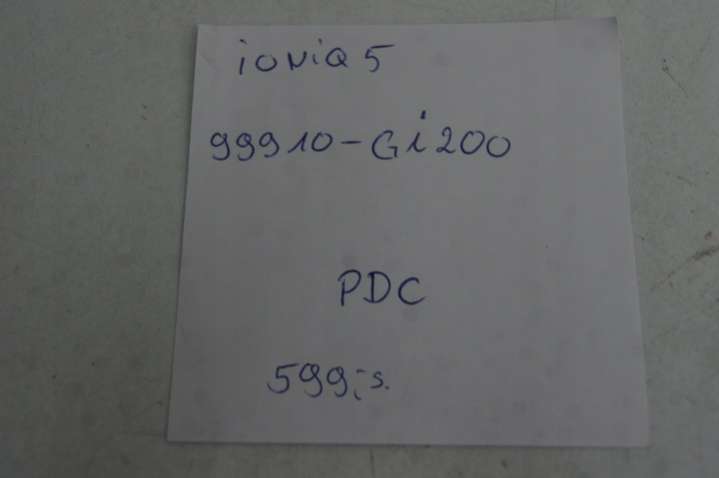 iONiQ 5
99910-Gi200
PDC
599,-s.